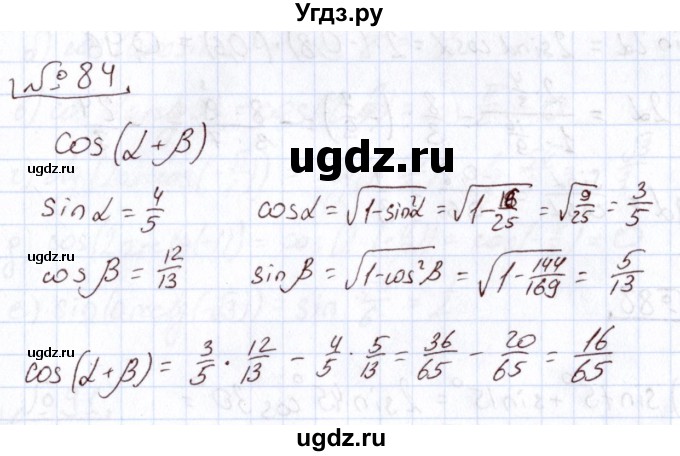 Угдз.ру
№ 84
cos(α+β)
ugdz.ru
ugdz.ru
ugdz.ru
sinα = 4/5 cosα = √(1-sin²α) = √(1-16/25) = √(9/25) = 3/5
ugdz.ru
ugdz.ru
cosβ = 12/13 sinβ = √(1-cos²β) = √(1-144/169) = 5/13
ugdz.ru
ugdz.ru
cos(α+β) = 3/5 · 12/13 - 4/5 · 5/13 = 36/65 - 20/65 = 16/65
ugdz.ru